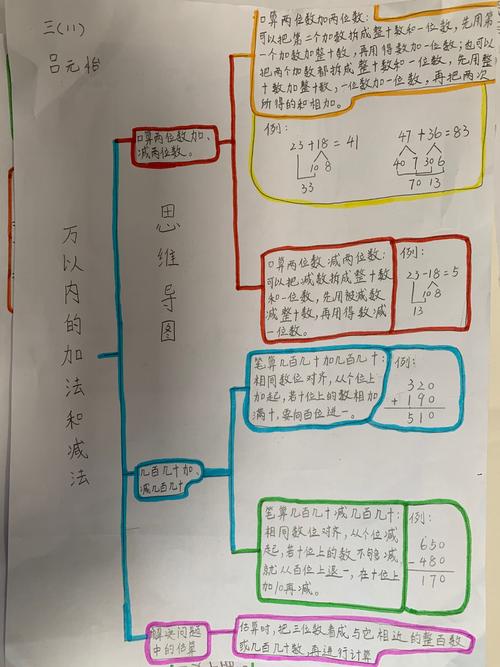 三(11)
吕元怡
万以内的加法和减法
思维导图
口算两位数加、
减两位数。
口算两位数加两位数:
可以把第二个加数拆成整十数和一位数,先用第
一个加数加整十数,再用得数加一位数;也可以
把两个加数都拆成整十数和一位数,先用整
十数加整十数,一位数加一位数,再把两次
所得的和相加。
例:
23+18=41
10 8
33
47+36=83
40 7 30 6
70 13
口算两位数减两位数:
可以把减数拆成整十数
和一位数,先用被减数
减整十数,再用得数减
一位数。
例:
23-18=5
10 8
13
几百几十加、
减几百几十
笔算几百几十加几百几十:
相同数位对齐,从个位上
加起,若十位上的数相加
满十,要向百位进一。
例:
320
+ 190
510
笔算几百几十减几百几十:
相同数位对齐,从个位减
起,若十位上的数不够减
就从百位上退一,在十位上
加10再减。
例:
650
- 480
170
解决问题
中的估算
估算时,把三位数看成与它相近的整百数
或几百几十数,再进行计算